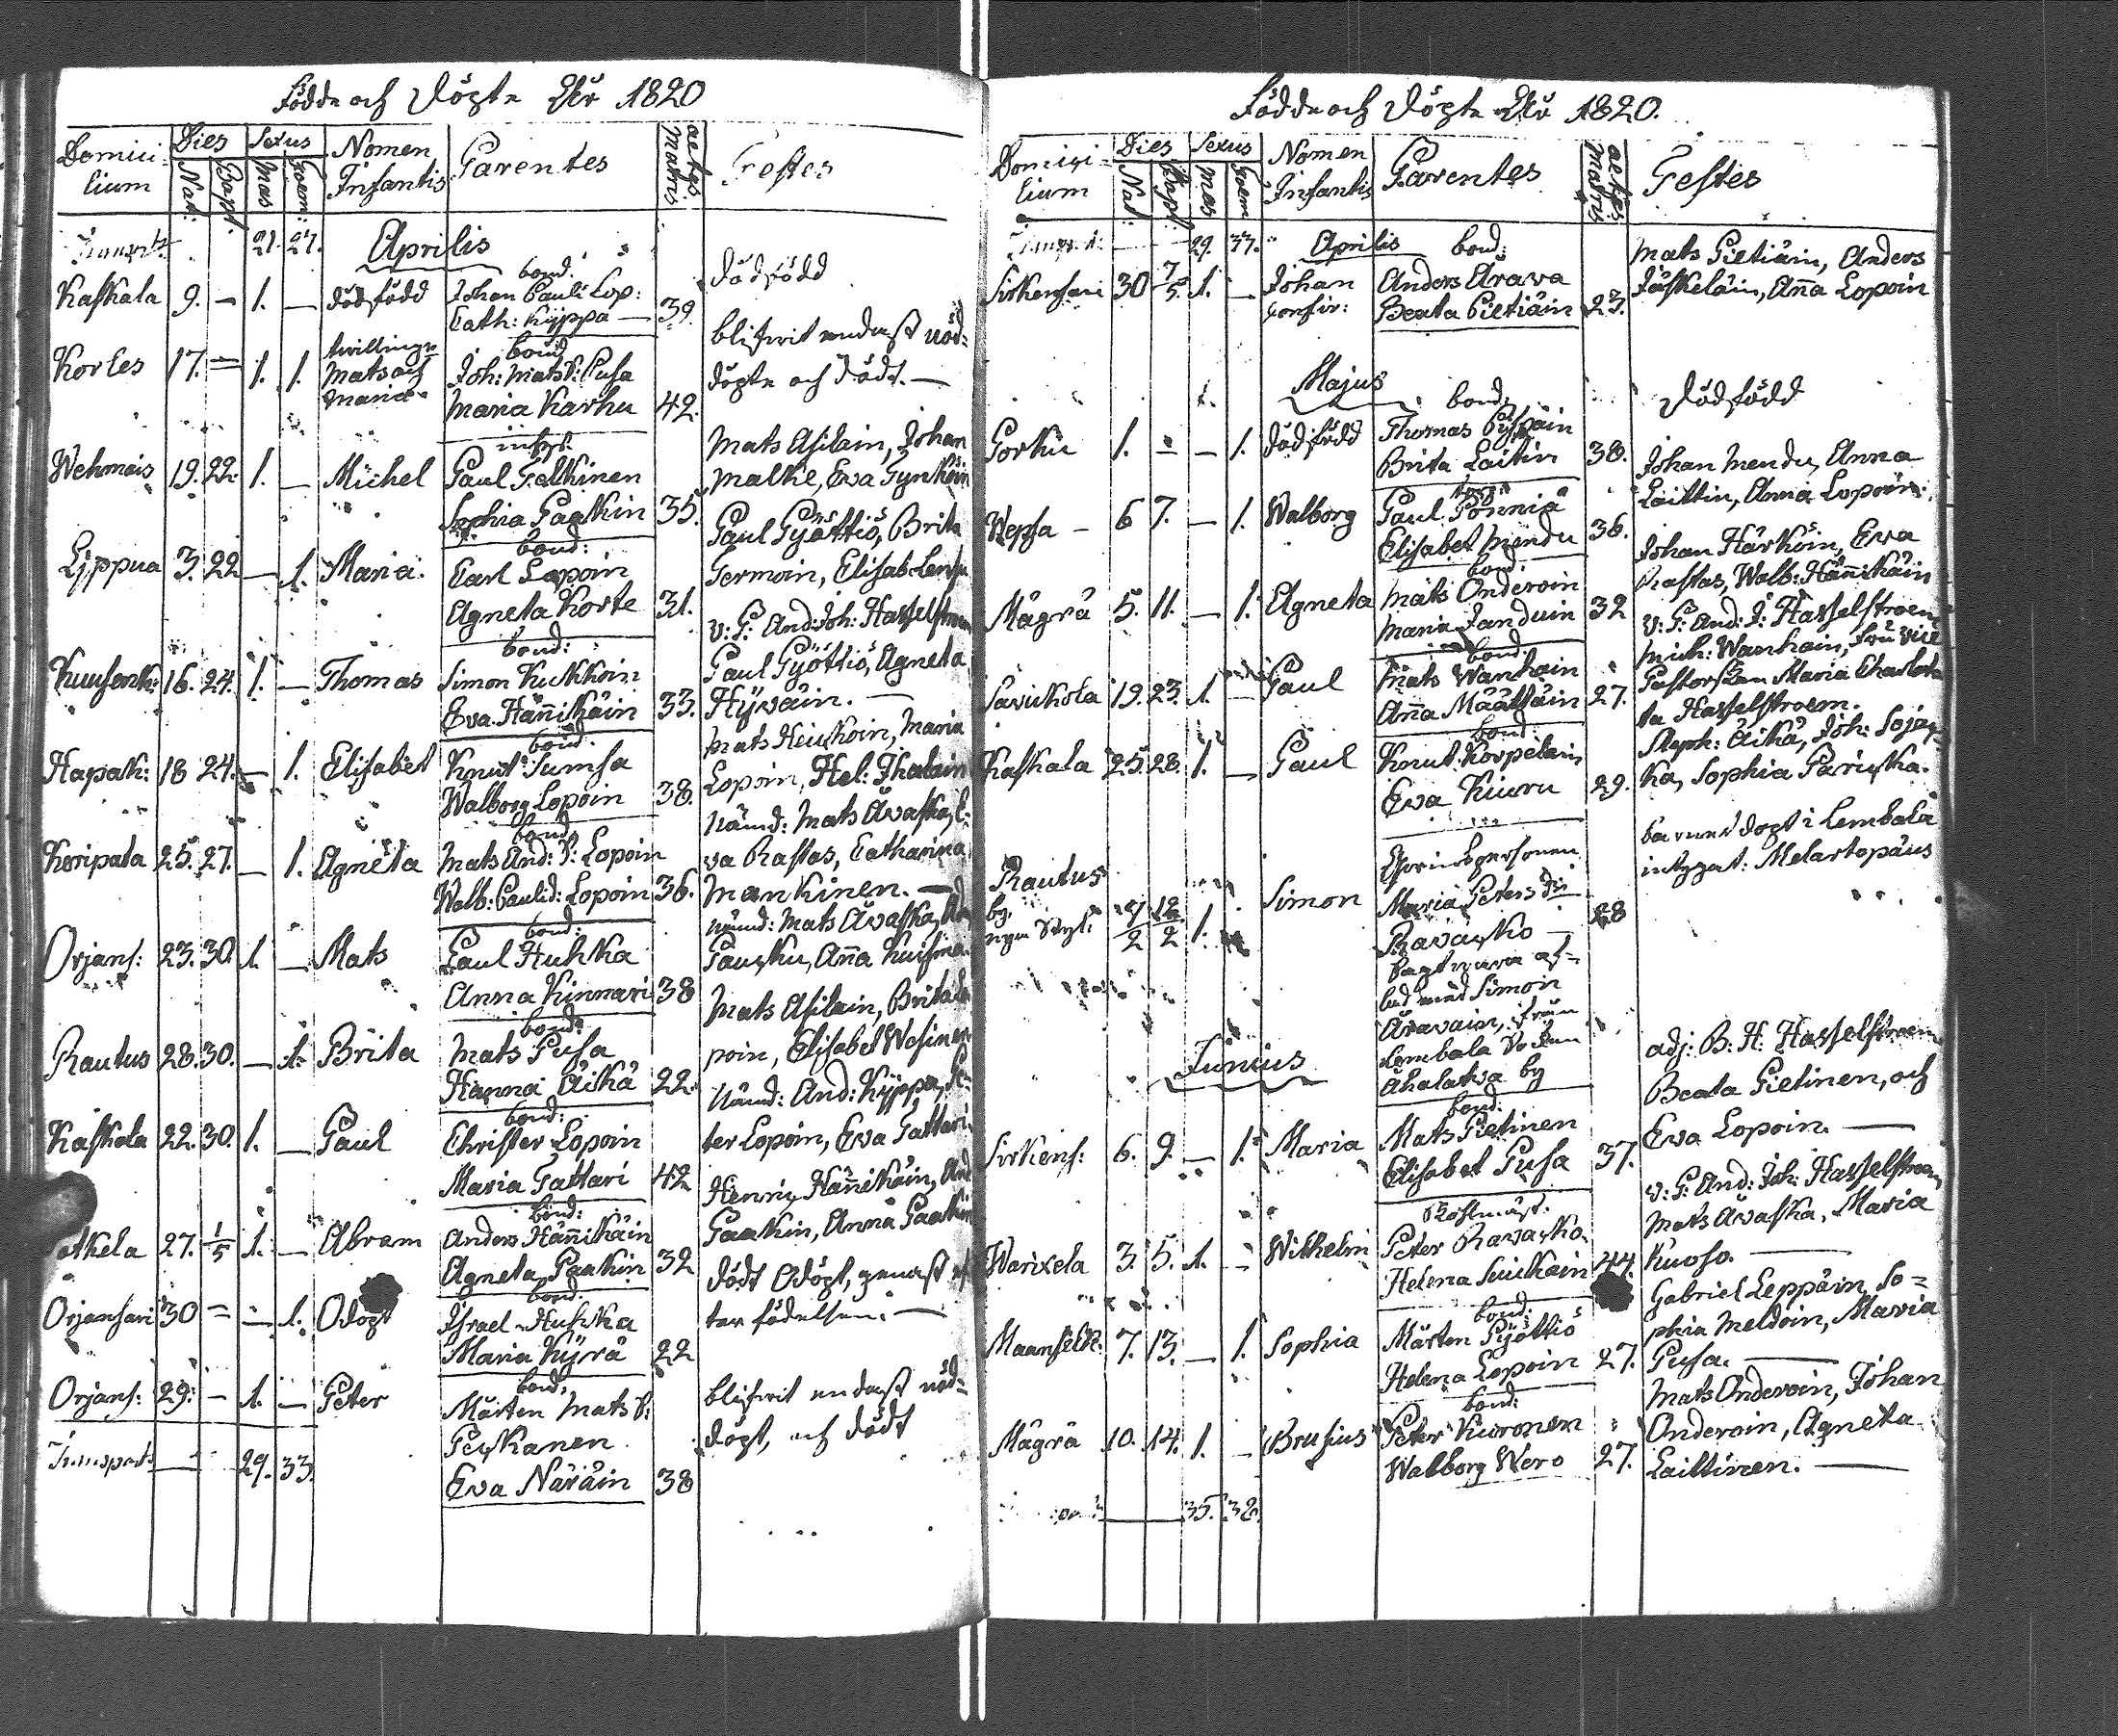 Födde och Döpte År 1820
Domici
lium
Dies
Nat:
Bapt.
Sexus
Mas
Foem:
Nomen
Infantis
Parentes
aetas
Matris
Testes
Transport
21. 27.
Aprilis
Kaskala 9. — 1. — dödfödd
bond:
Johan Pauli Lop:
Cath: Kyppa — 39.
dödfödd
Kortes 17. — 1. 1.
twillingr
Mats och
Maria
bond
Joh: Mats S: Pusa
Maria Karhu 42.
blifwit endast nöd=
döpte och dödt. —
Wehmais 19. 22. 1. — Michel
inhys:
Paul Pelkinen
Sophia Paakin 35.
Mats Asilain, Johan
Malke, Eva Pynnöin
Lippua 3. 22 — 1. Maria.
bond:
Carl Lopoin
Agneta Korte 31.
Paul Pyöttiö, Brita
Termoin, Elisab:
Kuusenk: 16. 24. 1. — Thomas
bond:
Simon Kukkoin
Eva Hännikäin 33.
v: P: And: Joh: Hasselstroem
Paul Pyöttiö, Agneta
Hyväin. —
Hapak: 18 24. — 1. Elisabet
bond:
Knut Sumsa
Walborg Lopoin 38.
Mats Heiskoin, Maria
Lopoin, Hel: Ihalain
Koripata 25. 27. — 1. Agneta
bond
Mats And: S: Lopoin
Walb: Paulid: Lopoin 36.
Nämd: Mats Äväska, E:
va Rastas, Catharina
Mankinen. —
Orjans: 23. 30. 1. — Mats
bond:
Paul Huhka
Anna Kinnari 38
nämd: Mats Äväska,
Pausku, Anna Kuisma
Rautus 28. 30. — 1. Brita
bond:
Mats Pusa
Hanna Äikä 22.
Mats Asilain, Brita Lo
poin, Elisabet Wesinen
Kaskala 22. 30. 1. — Paul
bond:
Christer Lopoin
Maria Tattari 42
Nämd: And: Kyppa, Pe:
ter Lopoin, Eva Tattari
atkela 27. 1/5 1. — Abram
bond:
Anders Hännikäin
Agneta Paakin 32
Henric Hännikäin, And
Paakin, Anna Paakin
Orjansari 30 — — 1. Odöpt
bond
Israel Huhka
Maria Kyrä 22
dödt Odöpt, genast ef
ter födelsen. —
Orjans: 29: — 1. — Peter
bond.
Mårten Mats S:
Peskanen
Eva Näräin 38
blifwit endast nöd=
döpt, och dödt
Transport — 29. 33.
Födde och Döpte År 1820.
Domici
lium
Dies
Nat:
Bapt
Sexus
Mas
Foem
Nomen
Infantis
Parentes
aetas
Matris
Testes
Transport: — 29. 33.
Aprilis
Sirkensari 30 7/5 1. — Johan
bond:
Anders Arava
Beata Pietiäin 23.
Mats Pietiäin, Anders
Jäskeläin, Anna Lopoin
Majus
Porku 1. — — 1. dödfödd
bond:
Thomas Pyspäin
Brita Laitin 38.
dödfödd
Wepsa — 6 7. — 1. Walborg
Paul Pönniä
Elisabet Mendu 36.
Johan Mendu, Anna
Laittin, Anna Lopoin.
Mägrä 5. 11. — 1. Agneta
bond:
Mats Onderoin
Maria Janduin 32
Johan Härköin, Eva
Rastas, Walb: Hännikäin
Savickola 19. 23. 1. — Paul
bond
Mats Wanhain
Anna Määttäin 27.
v: P: And: J: Hasselstroem
Mich: Wanhain, fru vice
Pastorskan Maria Charlot
ta Hasselstroem.
Kaskala 25. 28. 1. — Paul
bond:
Knut Korpelain
Eva Kiuru 29.
Steph: Äikä, Joh: Soja
ka, Sophia Pariska.
Rautus
by
1. Simon
Maria Peters D:r
Ravasko — 28
med Simon
Äravain, från
Lembala Socken
Ahalatva by
barnet döpt i Lembala
intygat: Melartopäus
Junius
Sirkens: 6. 9. — 1. Maria
bond:
Mats Pietinen
Elisabet Pusa 37.
adj: B: H: Hasselstroem
Beata Pietinen, och
Eva Lopoin. —
Warixela 3. 5. 1. — Wilhelm
Peter Ravasko
Helena Suikain 44.
v: P: And: Joh: Hasselstroem
Mats Äväska, Maria
Kuoso. —
Maanselk: 7. 13. — 1. Sophia
bond:
Mårten Pyöttiö
Helena Lopoin 27.
Gabriel Leppäin, So=
phia Meldoin, Maria
Pusa. —
Mägrä 10. 14. 1. — Brusius
bond:
Peter Kuronen
Walborg Wero 27.
Mats Onderoin, Johan
Onderoin, Agneta
Laittinen. —
35. 38.